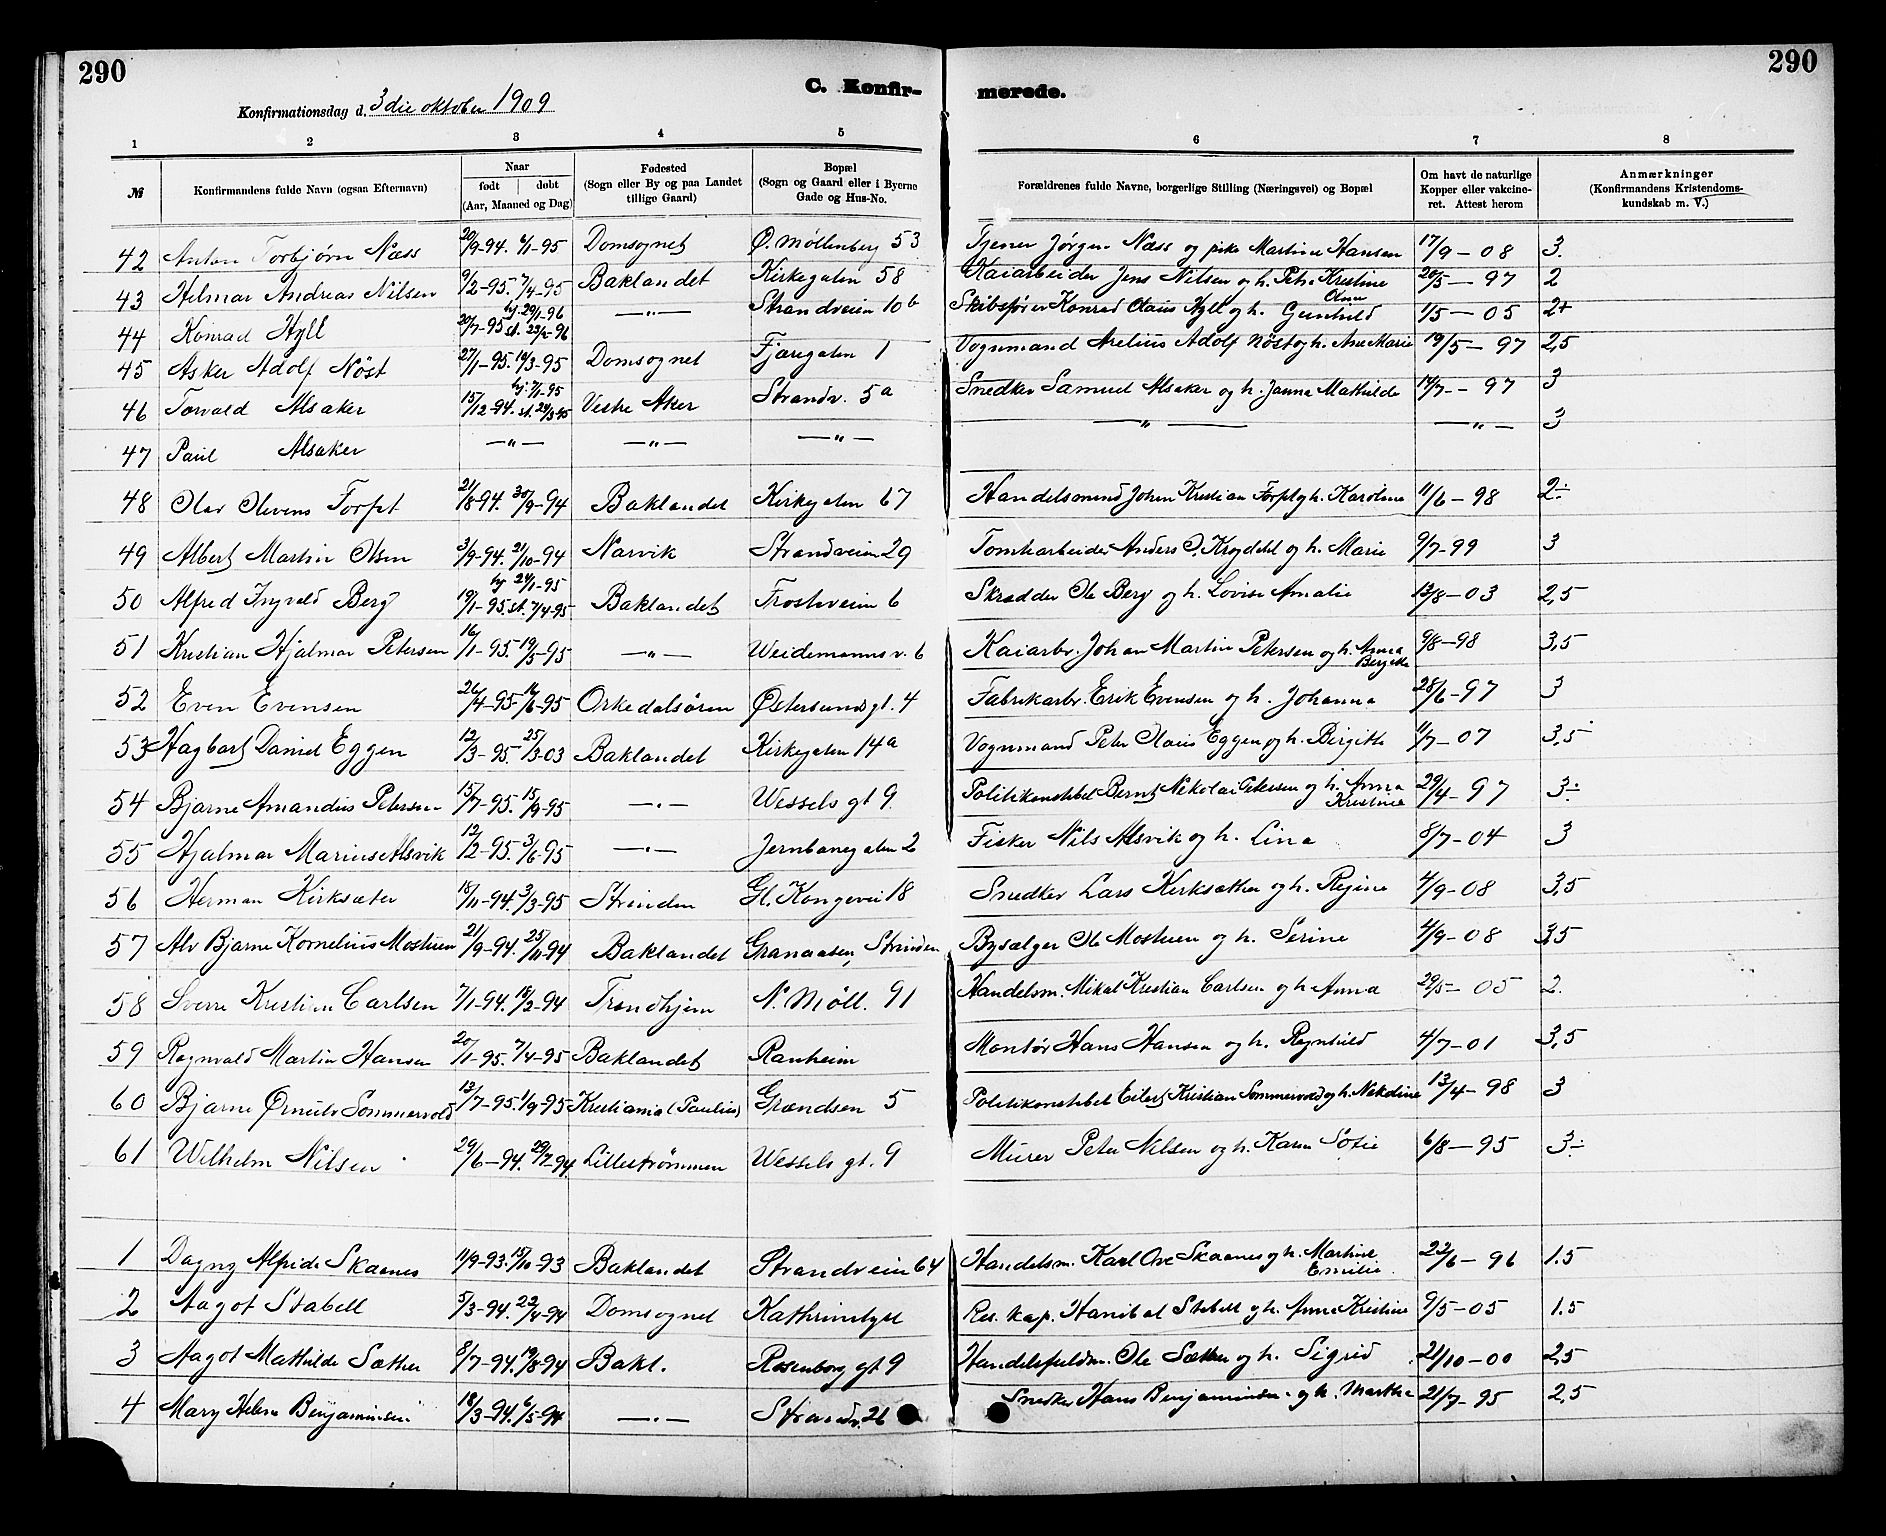 290
290
C. Konfir-
merede.
Konfirmationsdag d. 3die oktober 1909
1 2 3 4 5 6 7 8
№ Konfirmandens fulde Navn (ogsaa Efternavn) Naar født døbt (Aar, Maaned og Dag) Fødested (Sogn eller By og paa Landet tillige Gaard) Bopæl (Sogn og Gaard eller i Byerne Gade og Hus-No. Forældrenes fulde Navne, borgerlige Stilling (Næringsvei) og Bopæl Om havt de naturlige Kopper eller vakcineret. Attest herom Anmærkninger (Konfirmandens Kristendomskundskab m. V.)
42 Anton Torbjørn Næss 20/9-94. 6/1-95 Domsognet Ø. Möllenberg 53 Tjener Jörgen Næss og pike Martine Hansen 17/9-08 3.
43 Helmar Andreas Nilsen 9/2-95. 7/4-95 Baklandet Kirkegaten 58 Kaiarbeider Jens Nilsen og h. Petra Kristine 20/5-97 2
44 Konrad Hyll 20/7-95 hj. 29/1-96 st. 23/2-96 —"— Strandveien 10b Skibsfører Konrad Olaus Hyll og h. Gunhild Olava 1/5-05 2+
45 Asker Adolf Nöst 27/1-95. 14/3-95 Domsognet Fjæregaten 1 Vognmand Arelius Adolf Nöst og h. Ane Marie 19/5-97 2,5
46 Torvald Alsaker 15/12-94. hj. 7/1-95 st. 24/3-95 Vestre Aker Strandv. 5a Snedker Samuel Alsaker og h. Janna Mathilde 14/7-97 3
47 Paul Alsaker —"— —"— —"— —"— —"— 3
48 Olav Olevens Forfot 21/8-94. 30/9-94 Baklandet Kirkegaten 67 Handelsmand Johan Kristian Forfot og h. Karoline 11/6-98 2÷
49 Albert Martin Olsen 3/9-94. 21/10-94 Narvik Strandveien 29 Tomtearbeider Anders O. Krogdahl og h. Marie 9/7-99 3
50 Alfred Ingvald Berg 19/1-95. hj 24/1-95 st. 7/4-95 Baklandet Frostaveien 6 Skrædder Ole Berg og h. Lovise Amalie 13/8-03 2,5
51 Kristian Hjalmar Petersen 16/1-95. 19/5-95 —"— Weidemannsv. 6 Kaiarb. Johan Martin Petersen og h. Anna Bergitte 9/8-98 3,5
52 Even Evensen 26/4-95. 16/6-95 Orkedalsören Østersundsgt. 4 Fabrikarb. Erik Evensen og h. Johanna 28/6-97 3
53 Hagbart Daniel Eggen 12/3-95. 25/3-03 Baklandet Kirkegaten 14a Vognmand Peter Olaus Eggen og h. Birgitte 11/7-07 3,5
54 Bjarne Amandus Petersen 15/7-95. 15/9-95 —"— Wessels gt 9. Politikonstabel Bernt Nikolai Petersen og h. Anna Kristine 29/4-97 3÷
55 Hjalmar Marius Alsvik 12/2-95. 3/6-95 —"— Jernbanegaten 2 Fisker Nils Alsvik og h. Lina 8/7-04 3
56 Herman Kirksæter 18/11-94. 3/3-95 Strinden Gl. Kongevei 18 Snedker Lars Kirksæther og h. Regine 4/9-08 3,5
57 Alv Bjarne Kornelius Mostuen 21/9-94. 25/11-94 Baklandet Granaasen, Strinden Bysælger Ole Mostuen og h. Serine 4/9-08 3,5
58 Sverre Kristian Carlsen 7/1-94. 18/2-94 Trondhjem N. Möll. 91 Handelsm. Mikal Kristian Carlsen og h Anna 29/5-05 2.
59 Ragnvald Martin Hansen 20/1-95. 7/4-95 Baklandet Ranheim Montör Hans Hansen og h. Ragnhild 4/7-01 3,5
60 Bjarne Ørnulv Sommervold 13/7-95. 1/9-95 Kristiania (Paulus) Grændsen 5 Politikonstabel Eilert Kristian Sommervold og h. Nikoline 13/4-98 3
61 Wilhelm Nilsen 29/6-94. 29/7-94. Lilleströmmen Wessels gt. 9 Murer Peter Nilsen og h. Karen Sofie 6/8-95 3÷
1 Dagny Alfride Skaanes 11/9-93. 15/10-93 Baklandet Strandveien 64 Handelsm. Karl Ove Skaanes og h. Martine Emilie 22/6-96 1.5
2 Aagot Stabell 5/3-94. 22/4-94 Domsognet Kathrinelyst Res. kap. Hanibal Stabell og h. Anna Kristine 9/5-05 1.5
3 Aagot Mathilde Sæther 8/7-94. 19/8-94 Bakl. Rosenborg gt 9 Handelsfuldm. Ole Sæther og h. Sigrid 21/10-00 2,5
4 Mary Helene Benjaminsen 18/3-94. 6/5-94 —"— Strandv. 26 Snedker Hans Benjaminsen og h. Marthe 21/7-95 2,5